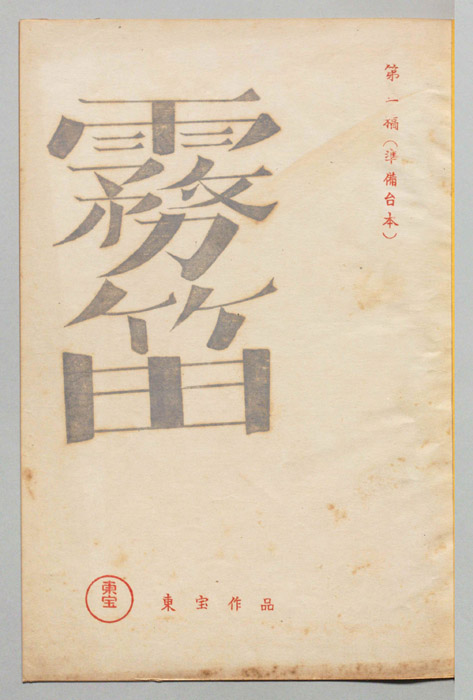 第一稿(準備台本)
霧笛
東宝
東宝作品